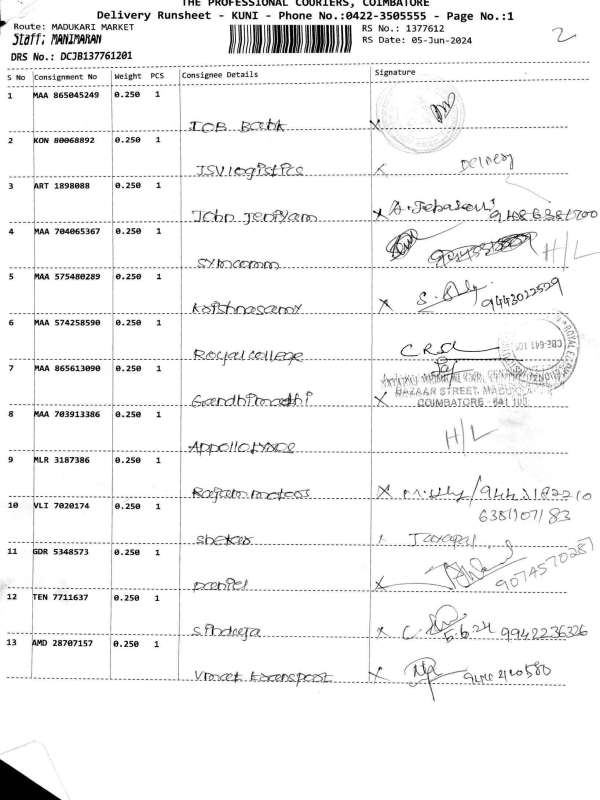 THE PROFESSIONAL COURIERS, COIMBATORE
Delivery Runsheet - KUNI - Phone No.:0422-3505555 - Page No.:1
Route: MADUKARI MARKET RS No.: 1377612
Staff; MANIMARAN RS Date: 05-Jun-2024 2
DRS No.: DCJB137761201
S No Consignment No Weight PCS Consignee Details Signature
1 MAA 865045249 0.250 1
IOB Bank X
2 KON 80068892 0.250 1
JSV logistics Delivery
3 ART 1898088 0.250 1
John Jeniyam X A.
4 MAA 704065367 0.250 1
H/L
5 MAA 575480289 0.250 1
Krishnasamy X S. 9443022529
6 MAA 574258590 0.250 1
Royal college
7 MAA 865613090 0.250 1
Gandhimathi X
BAZAAR STREET,
COIMBATORE - 641 105
8 MAA 703913386 0.250 1
H/L
9 MLR 3187386 0.250 1
Rajam motors X
6381107183
10 VLI 7020174 0.250 1
Shekar
11 GDR 5348573 0.250 1
Daniel X 9074570287
12 TEN 7711637 0.250 1
Sindhuja X C. 5.6.24 9942236326
13 AMD 28707157 0.250 1
Vinoet transpoot X